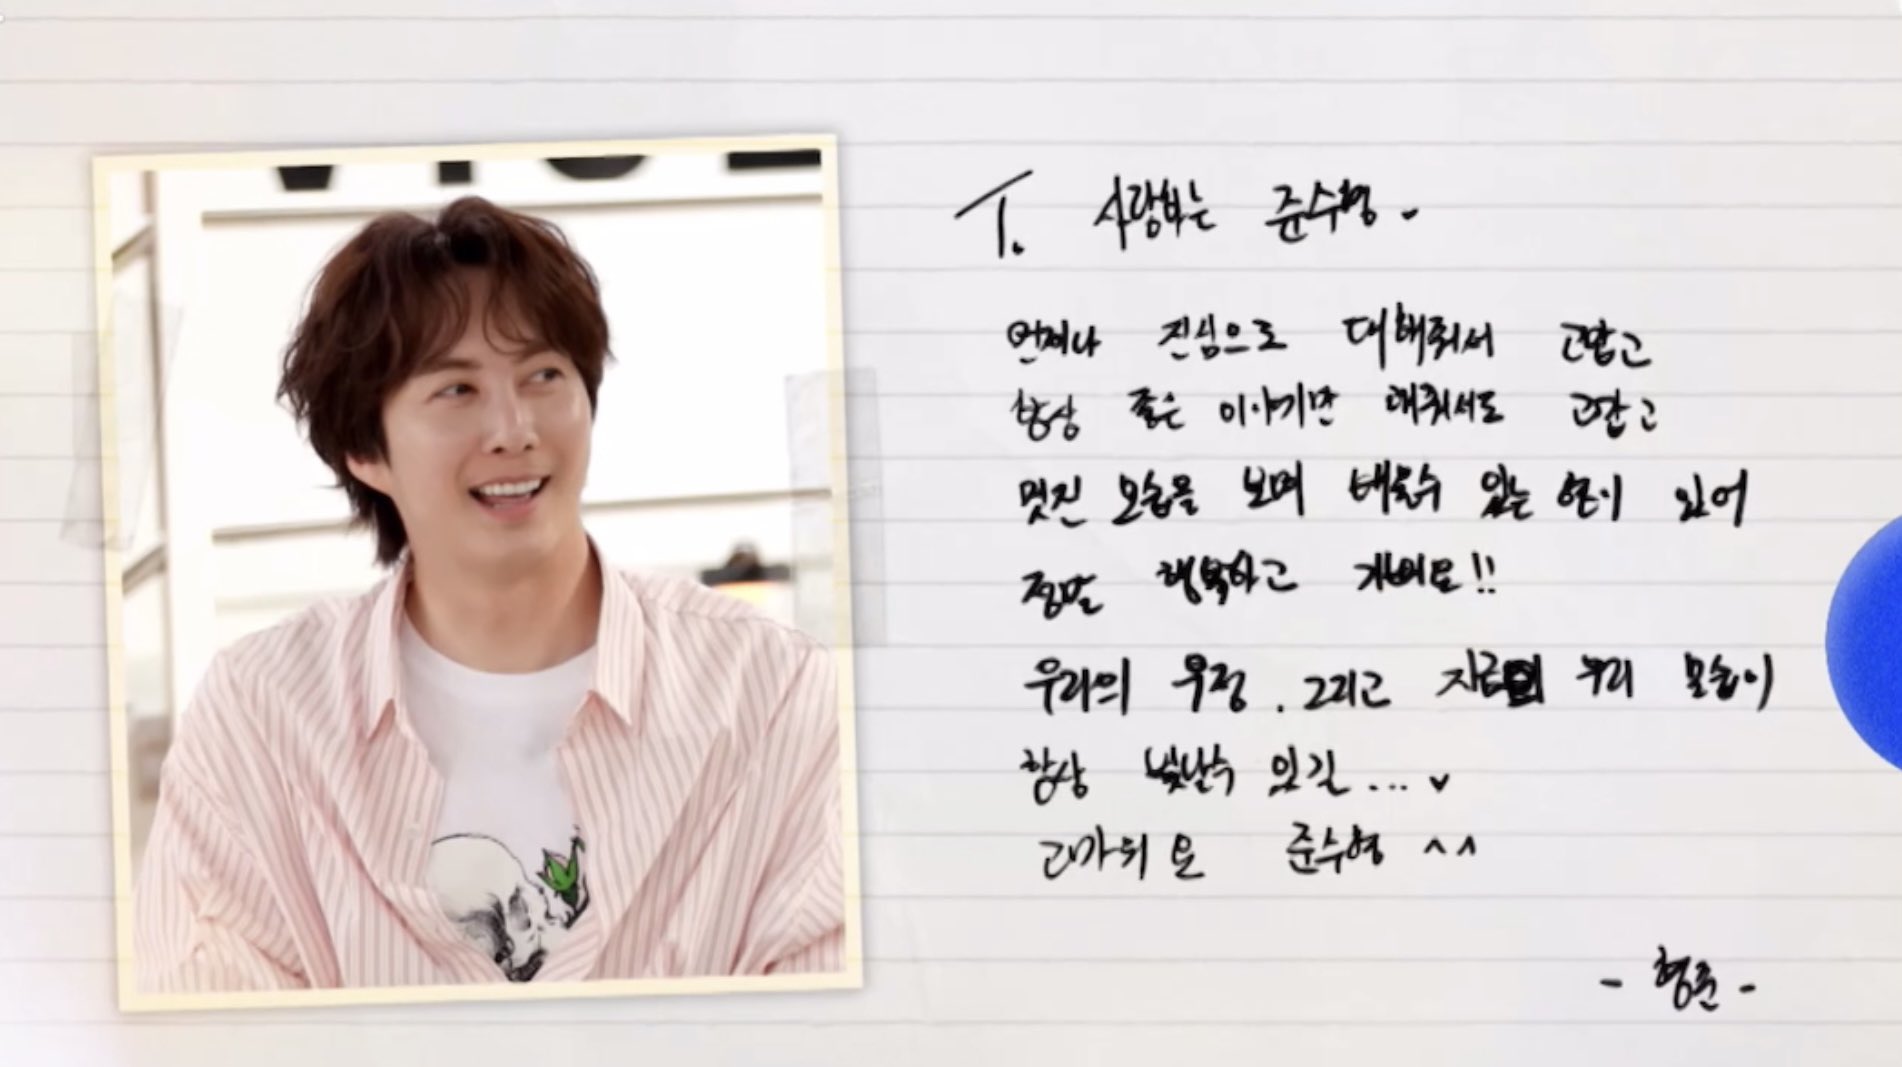 T. 사랑하는 준수형
언제나 진심으로 대해줘서 고맙고
항상 좋은 이야기만 해줘서도 고맙고
멋진 모습을 보며 배울수 있는 형이 있어
정말 행복하고 기뻐요!!
우리의 우정. 그리고 지금의 우리 모습이
항상 빛날수 있길...♥
고마워요 준수형 ^^
- 형준 -